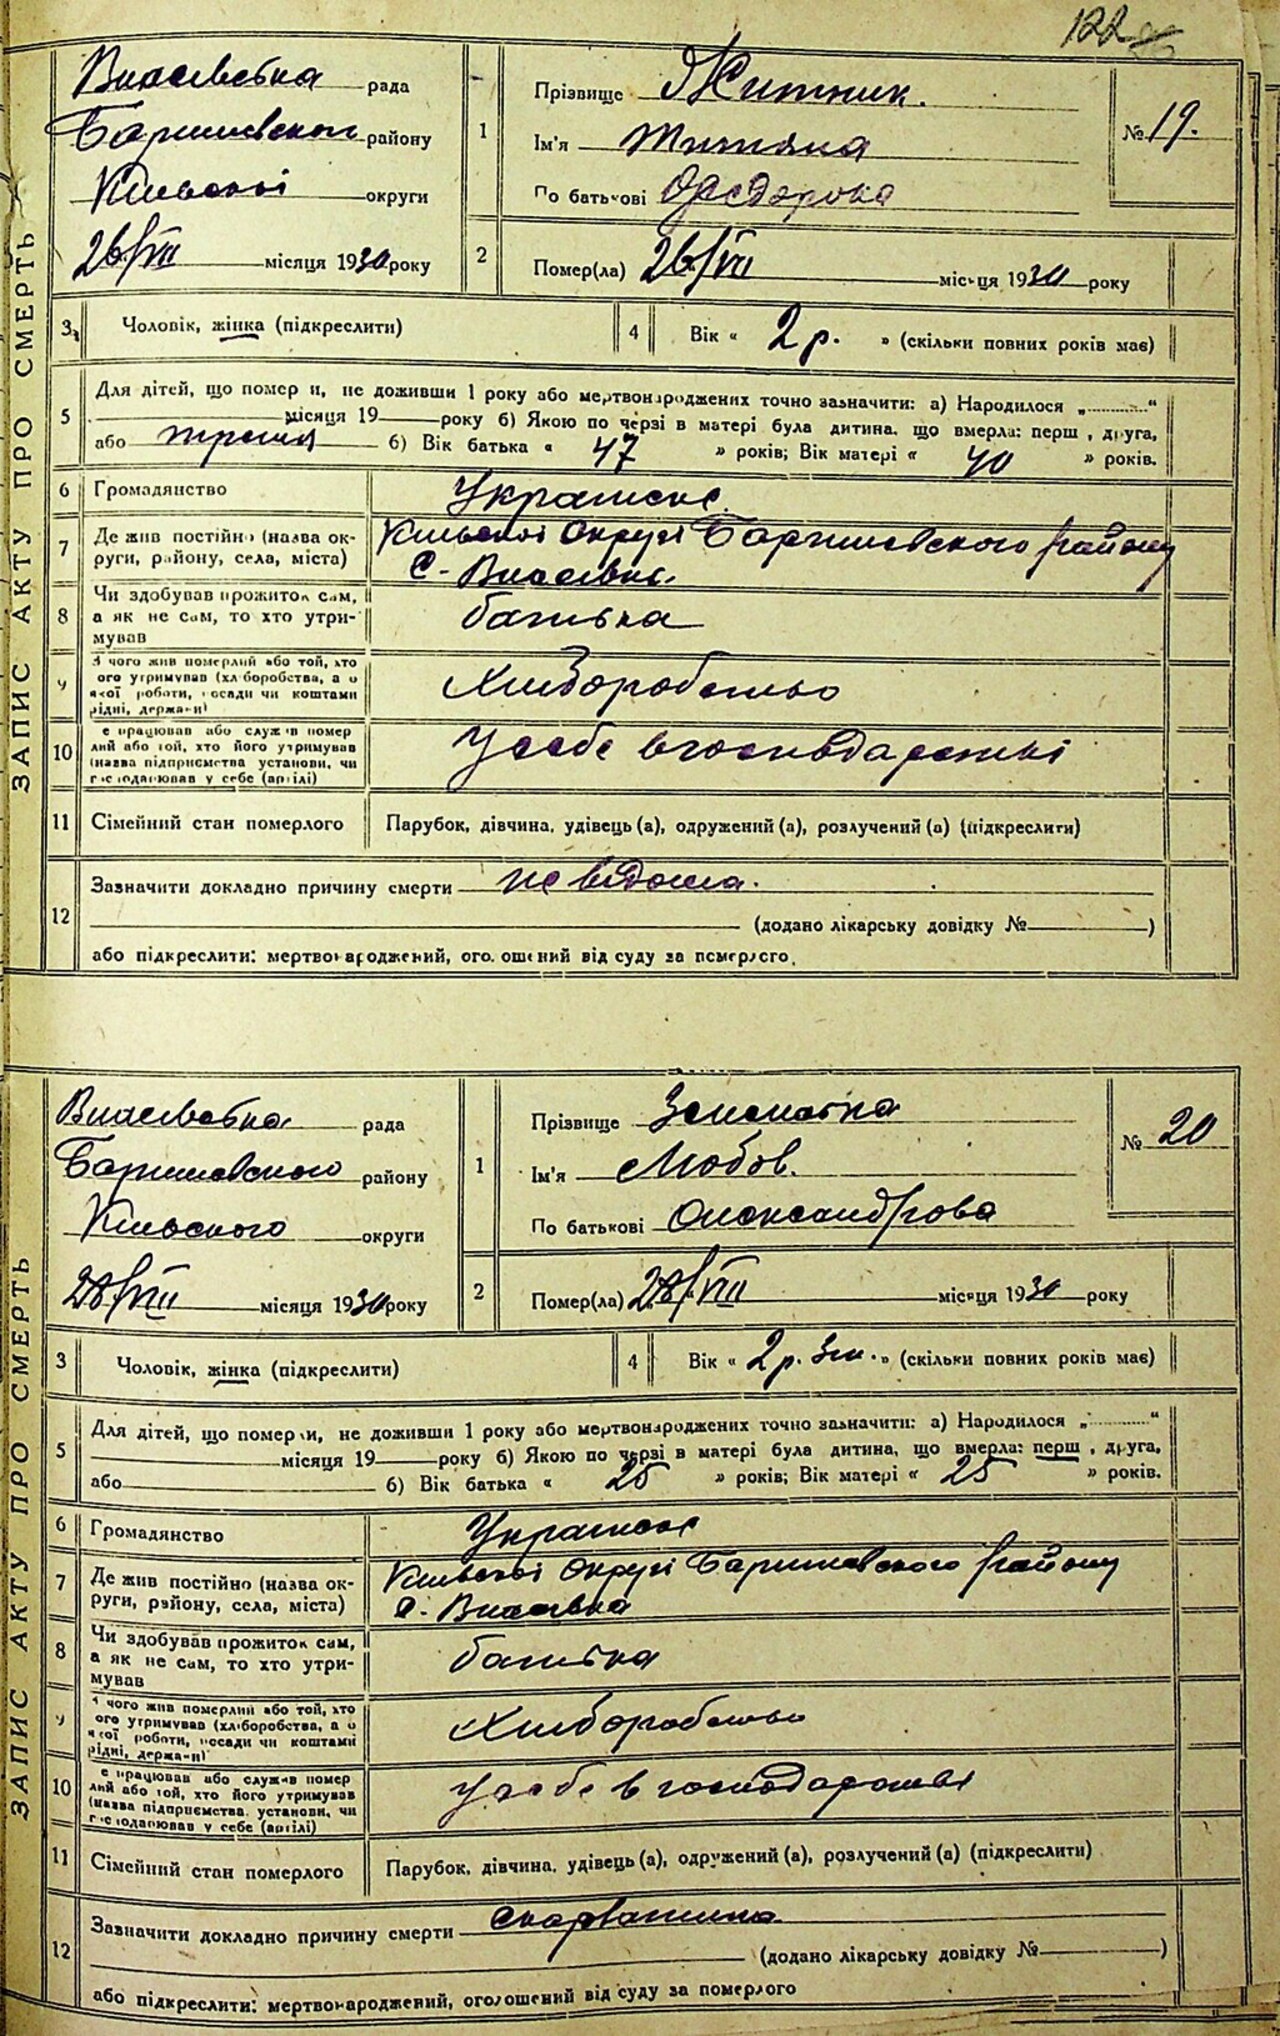 122
ЗАПИС АКТУ ПРО СМЕРТЬ
Власівська рада
Баришевської району
Київської округи
26/VII місяця 1930 року
1
Прізвище Житник.
Ім'я Титяна
По батькові Федорова
№ 19.
2
Помер(ла) 26/VII місяця 1930 року
3
Чоловік, жінка (підкреслити)
4
Вік « 2 р. » (скільки повних років має)
5
Для дітей, що померли, не доживши 1 року або мертвонароджених точно зазначити: а) Народилося „ “
місяця 19 року б) Якою по черзі в матері була дитина, що вмерла: перш , друга,
або третя б) Вік батька « 47 » років; Вік матері « 40 » років.
6
Громадянство
Українське
7
Де жив постійно (назва ок-
руги, району, села, міста)
Київської Округи Баришевського району
С. Власівка.
8
Чи здобував прожиток сам,
а як не сам, то хто утри-
мував
батька
9
З чого жив померлий або той, хто
ого утримував (хліборобства, а о
якої роботи, посади чи коштами
рідні, держави)
Хліборобство
10
е працював або служив помер
лий або той, хто його утримував
(назва підприємства установи, чи
господарював у себе (артілі)
У себе в господарстві
11
Сімейний стан померлого
Парубок, дівчина, удівець (а), одружений (а), розлучений (а) (підкреслити)
12
Зазначити докладно причину смерти невідома.
(додано лікарську довідку № )
або підкреслити: мертвонароджений, оголошений від суду за померлого.
ЗАПИС АКТУ ПРО СМЕРТЬ
Власівська рада
Баришевського району
Київського округи
28/VIII місяця 1930 року
1
Прізвище
Ім'я Любов.
По батькові Олександрова
№ 20
2
Помер(ла) 28/VIII місяця 1930 року
3
Чоловік, жінка (підкреслити)
4
Вік « 2 р. 3 м. » (скільки повних років має)
5
Для дітей, що померли, не доживши 1 року або мертвонароджених точно зазначити: а) Народилося „ “
місяця 19 року б) Якою по черзі в матері була дитина, що вмерла: перш , друга,
або б) Вік батька « 25 » років; Вік матері « 25 » років.
6
Громадянство
Українське
7
Де жив постійно (назва ок-
руги, району, села, міста)
Київської Округи Баришевського району
с. Власівка
8
Чи здобував прожиток сам,
а як не сам, то хто утри-
мував
батька
9
З чого жив померлий або той, хто
ого утримував (хліборобства, а о
якої роботи, посади чи коштами
рідні, держави)
Хліборобство
10
е працював або служив помер
лий або той, хто його утримував
(назва підприємства установи, чи
господарював у себе (артілі)
у себе в господарстві
11
Сімейний стан померлого
Парубок, дівчина, удівець (а), одружений (а), розлучений (а) (підкреслити)
12
Зазначити докладно причину смерти Скарлатина.
(додано лікарську довідку № )
або підкреслити: мертвонароджений, оголошений від суду за померлого